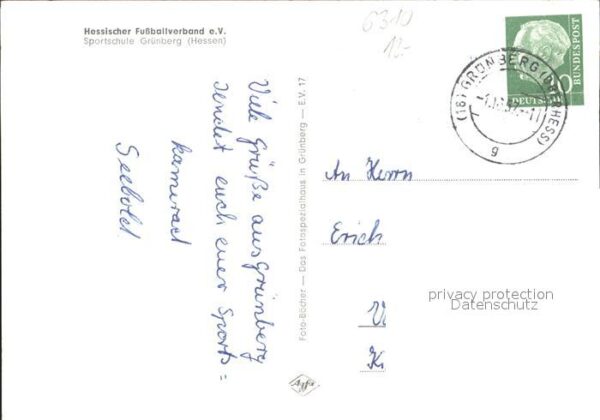 Hessischer Fußballverband e.V.
Sportschule Grünberg (Hessen)
6310
12.-
DEUTSCHE
BUNDESPOST
(16) GRÜNBERG (OBERHESS)
g
Viele Grüße aus Grünberg
sendet euch euer Sports=
kamerad
Seebold
Foto-Bücher — Das Fotospezialhaus in Grünberg — E.V. 17
Agfa
An Herrn
Erich
V
K
privacy protection
Datenschutz